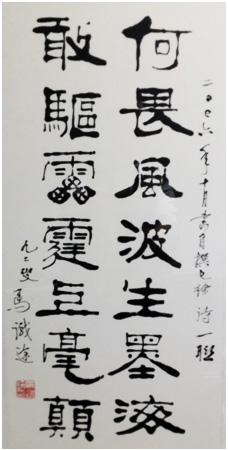 二〇〇六年十月書自撰七律詩一聯
何畏風波生墨海
敢驅靁霆上毫顛
九二叟馬識途